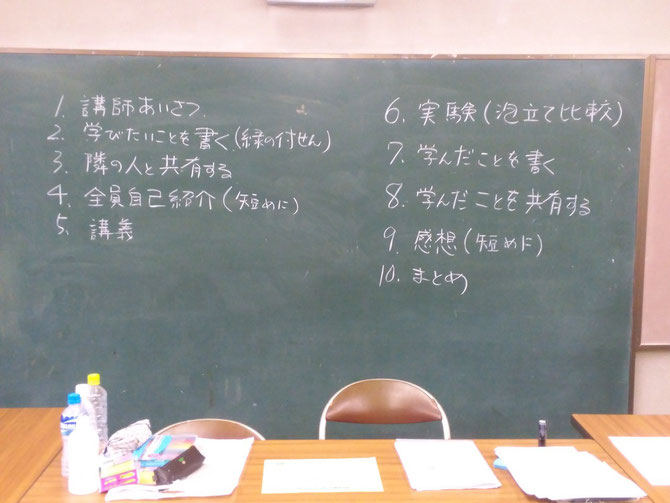 1. 講師あいさつ
2. 学びたいことを書く(緑の付せん)
3. 隣の人と共有する
4. 全員自己紹介(短めに)
5. 講義
6. 実験(泡立て比較)
7. 学んだことを書く
8. 学んだことを共有する
9. 感想(短めに)
10. まとめ